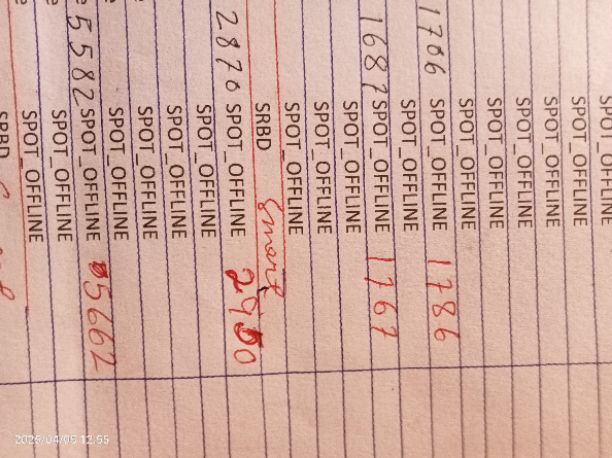 SPOT_OFFLINE
SPOT_OFFLINE
SPOT_OFFLINE
SPOT_OFFLINE
SPOT_OFFLINE
1706 SPOT_OFFLINE 1786
SPOT_OFFLINE
1687 SPOT_OFFLINE 1767
SPOT_OFFLINE
SPOT_OFFLINE
SPOT_OFFLINE
SRBD Smart
2870 SPOT_OFFLINE 2950
SPOT_OFFLINE
SPOT_OFFLINE
SPOT_OFFLINE
SPOT_OFFLINE
5582 SPOT_OFFLINE 5662
SPOT_OFFLINE
SPOT_OFFLINE
SRBD
2026/04/05 12:55